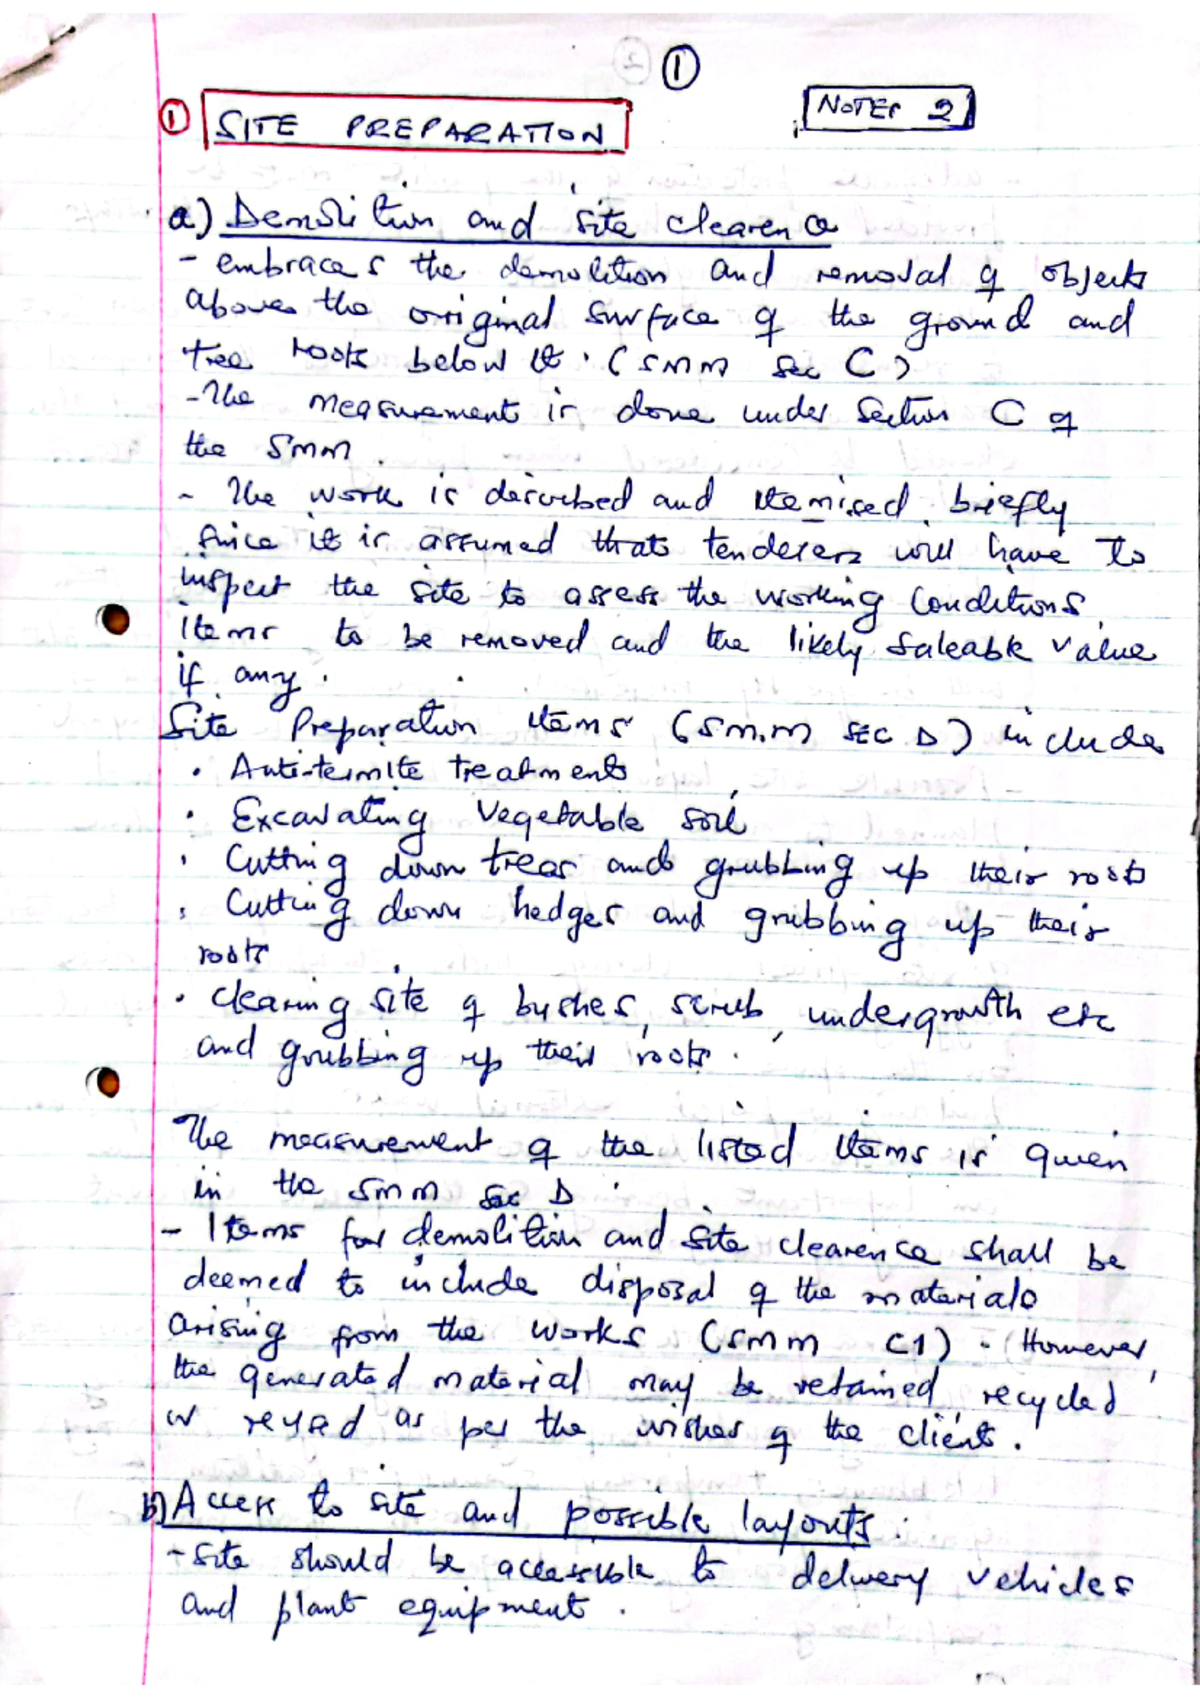 ①
NOTES 2
① SITE PREPARATION
a) Demolition and site clearence
- embraces the demolition and removal of objects
above the original surface of the ground and
tree roots below it. (SMM Sec C)
- The measurement is done under Section C of
the SMM
- The work is described and itemised briefly
since it is assumed that tenderers will have to
inspect the site to assess the working conditions,
items to be removed and the likely saleable value
if any.
Site Preparation items (SMM SEC D) include
• Anti-termite treatments
• Excavating Vegetable soil
• Cutting down trees and grubbing up their roots
• Cutting down hedges and grubbing up their
roots
• Clearing site of bushes, scrub, undergrowth etc
and grubbing up their roots.
The measurement of the listed items is given
in the SMM Sec D.
- Items for demolition and site clearence shall be
deemed to include disposal of the materials
arising from the works (SMM C1). However,
the generated material may be retained, recycled
or reused as per the wishes of the client.
b) Access to site and possible layouts.
- Site should be accessible to delivery vehicles
and plant equipment.